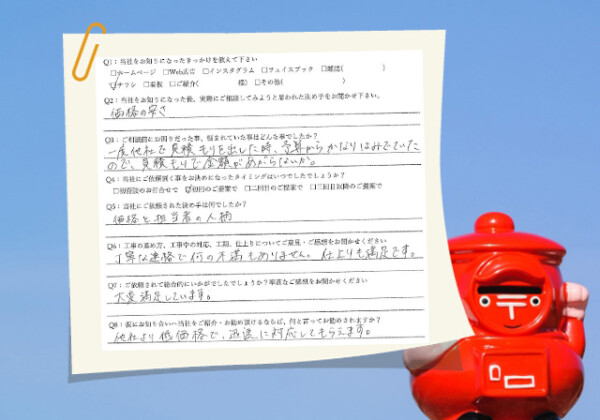 Q1：当社をお知りになったきっかけを教えて下さい
□ホームページ □Web広告 □インスタグラム □フェイスブック □雑誌( )
☑チラシ □看板 □ご紹介( 様) □その他( )
Q2：当社をお知りになった後、実際にご相談してみようと思われた決め手をお聞かせ下さい。
価格の安さ
Q3：ご相談前にお困りだった事、悩まれていた事はどんな事でしたか？
一度他社で見積もりを出した時、予算からかなりはみでていた
ので、見積もりで金額があがらないか。
Q4：当社にご依頼頂く事をお決めになったタイミングはいつでしたでしょうか？
□初面談のお打合せで ☑初回のご提案で □二回目のご提案で □三回目以降のご提案で
Q5：当社にご依頼された決め手は何でしたか？
価格と担当者の人柄
Q6：工事の進め方、工事中の対応、工期、仕上りについてご意見・ご感想をお聞かせください
丁寧な連絡で何の不満もありません。仕上りも満足です。
Q7：ご依頼されて総合的にいかがでしたでしょうか？率直なご感想をお聞かせください
大変満足しています。
Q8：仮にお知り合いへ当社をご紹介・お勧め頂けるならば、何と言ってお勧めされますか？
他社より低価格で、迅速に対応してもらえます。
〒